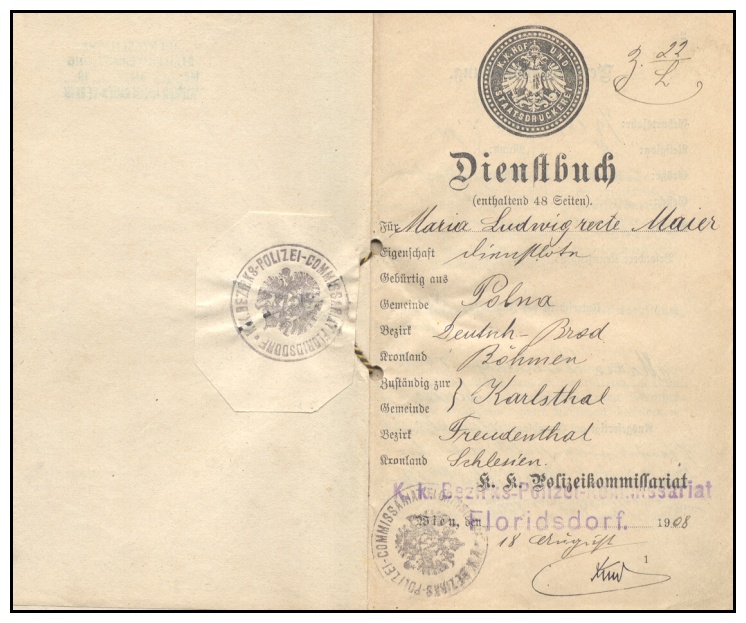 K.K. HOF UND STAATSDRUCKEREI
Z. 22/L
Dienstbuch
(enthaltend 48 Seiten).
Für Maria Ludwig recte Maier
Eigenschaft Dienstbote
Gebürtig aus
Gemeinde Polna
Bezirk Deutsch-Brod
Kronland Böhmen
Zuständig zur
Gemeinde } Karlsthal
Bezirk Freudenthal
Kronland Schlesien.
K. K. Polizeikommissariat
K. k. Bezirks-Polizei-Kommissariat
Wien, den Floridsdorf. 1908
18 August
1
K.K. BEZIRKS-POLIZEI-COMMISSARIAT FLORIDSDORF
K.K. BEZIRKS-POLIZEI-COMMISSARIAT